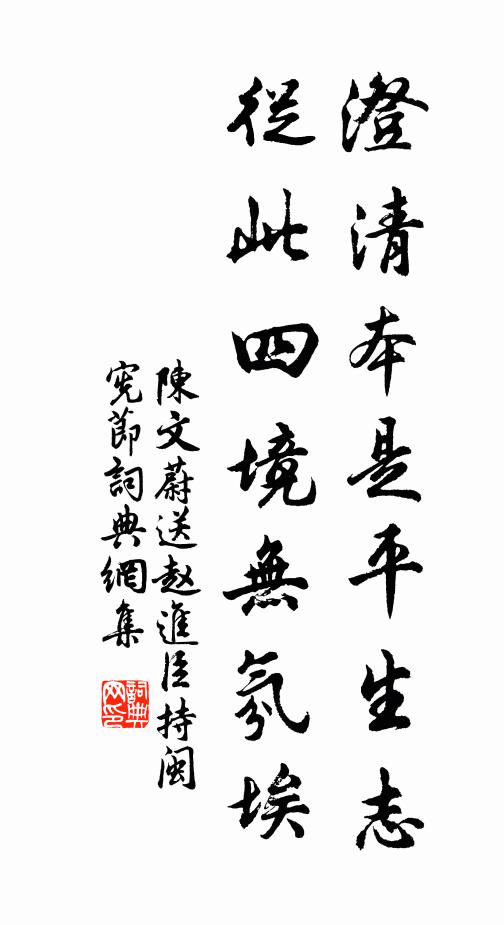 澄清本是平生志
從此四境無氛埃
陳文蔚送赵進臣持閩
宪節詞典網集
詞典
网印